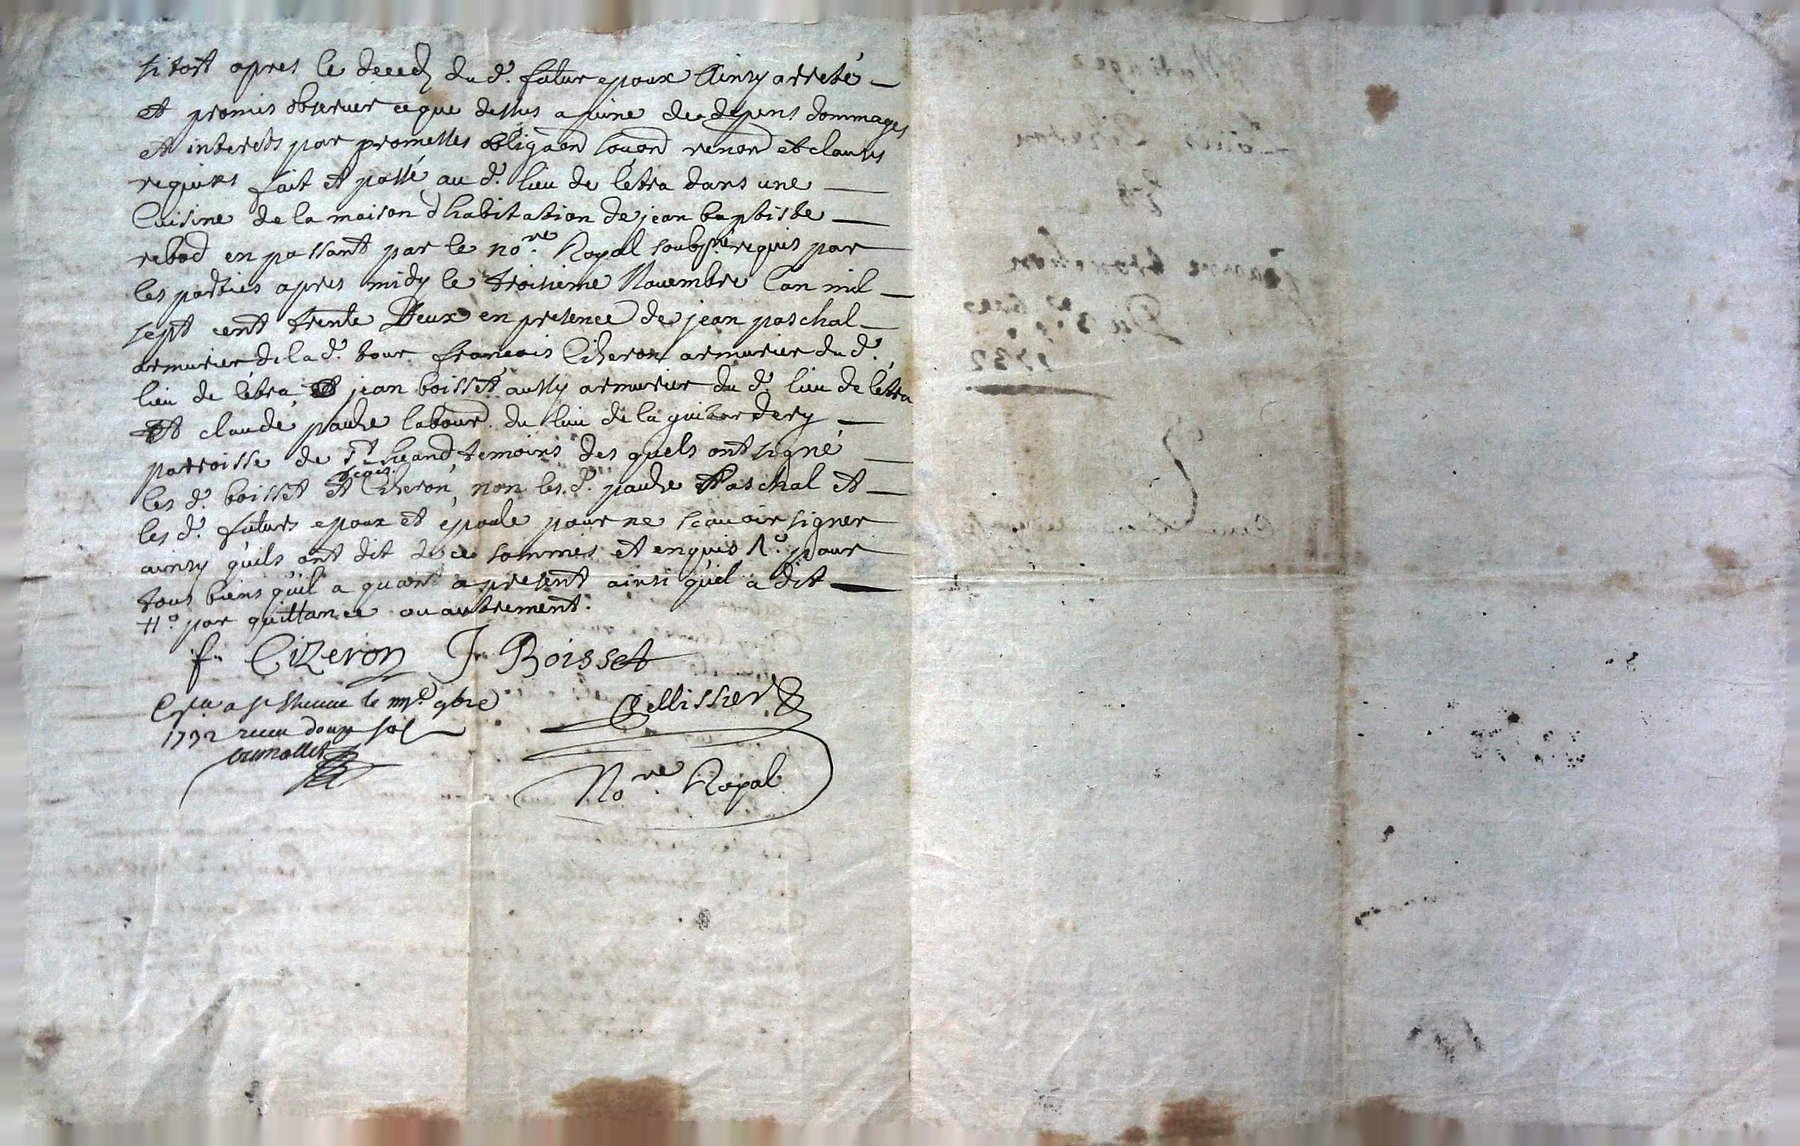 sitost apres le deced du d. futur epoux Ainsy arreté
et promis observer ceque dessus a peine de depens dommages
et interets par promesses obligaon renon et clauses
requises fait et passé au d. lieu de létra dans une
Cuisine de la maison d'habitation de jean baptiste
rebod en passant par le no.re Royal soubsné requis par
les parties apres midy le troisieme Novembre lan mil
sept cent trente Deux en presence de jean paschal
armurier de la d. bour. francois Cizeron armurier du d.
lieu de létra et jean boisset aussy armurier du d. lieu de létra
et claude labour. du lieu de la
parroisse de St heand temoins des quels ont signé
les d. boisset et Cizeron, non les d. paschal et
les d. futurs epoux et épouse pour ne scavoir signer
ainsy quils ont dit de ce sommés et enquis pour
tous biens quil a quant a present ainsi quil a dit
par quittance ou autrement.
f. Cizeron J. Boisset
a le 9bre Pellissier
1732 recu douze sols
No.re Royal
Mariage
Louis Cizeron
Et
jeanne
Du 3 9bre
1732